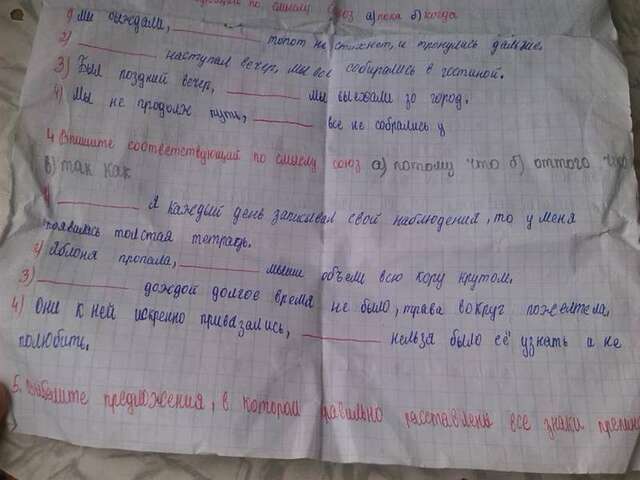 по смыслу союз а) пока б) когда
1) Мы выждали, топот не стихнет, и тронулись дальше.
2) наступал вечер, мы все собирались в гостиной.
3) Был поздний вечер, мы выехали за город.
4) Мы не продолж пути, все не собрались у
4 Впишите соответствующий по смыслу союз а) потому что б) оттого что
в) так как
1) я каждый день записывал свой наблюдения, то у меня
появилась толстая тетрадь.
2) Яблоня пропала, мыши объели всю кору кругом.
3) дождой долгое время не было, трава вокруг пожелтела.
4) Они к ней искренно привязались, нельзя было её узнать и не
полюбить.
5. предложения, в котором правильно расставлены все знаки препин